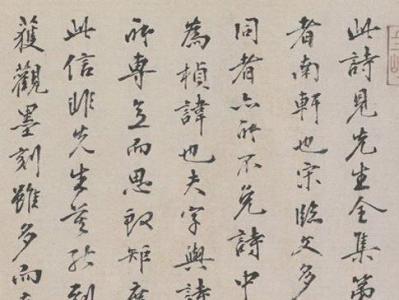 此詩見先生全集第
者南軒也宋臨文多
同者亦所不免詩中
為楨諱也夫字與詩
所專立而思致矩度
此信非先生莫能到
獲觀墨刻雖多而